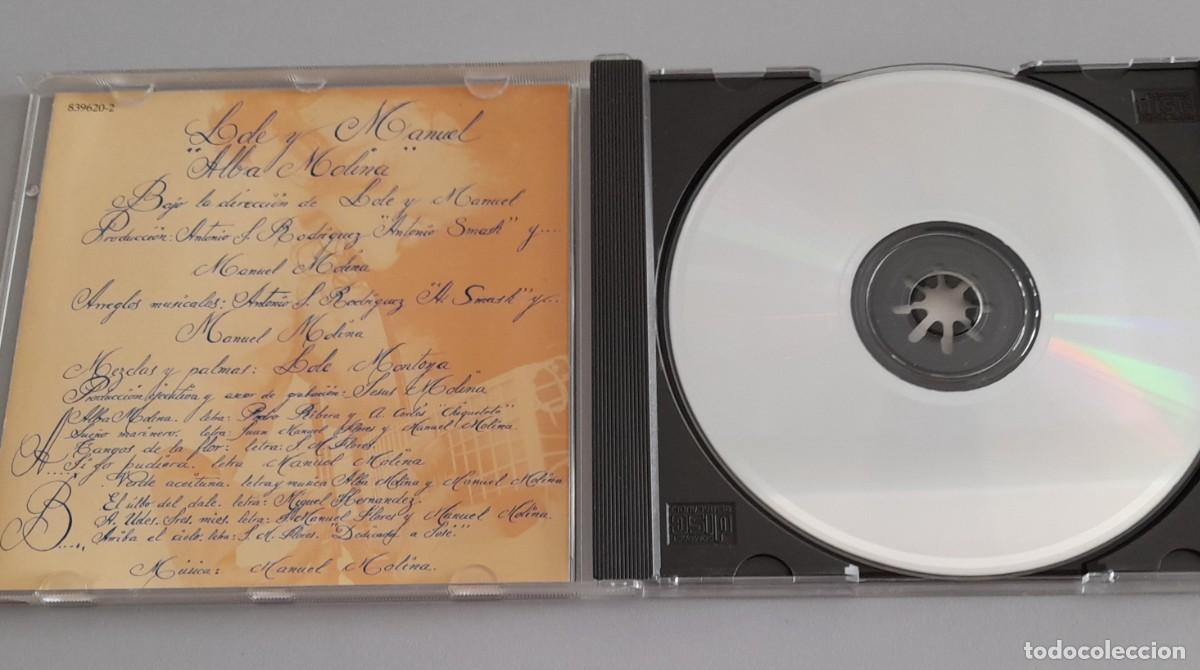 839620-2
Lole y Manuel
"Alba Molina"
Bajo la dirección de Lole y Manuel
Producción: Antonio S. Rodríguez "Antonio Smash" y....
Manuel Molina
Arreglos musicales: Antonio S. Rodríguez "A. Smash" y...
Manuel Molina
Mezclas y palmas: Lole Montoya
Producción ejecutiva y asesor de grabación: Jesus Molina
A....
Alba Molina. letra: Pedro Ribera y A. Cortés "Chiquetete"
Sueño marinero. letra: Juan Manuel Flores y Manuel Molina.
Tangos de la flor: letra: J. M. Flores.
Si yo pudiera. letra Manuel Molina
Verde aceituna. letra y musica Alba Molina y Manuel Molina
B....
El silbo del dale. letra: Miguel Hernandez.
A. Udes. Sres. mies. letra: J. Manuel Flores y Manuel Molina.
Arriba el cielo. letra: J. M. Flores. "Dedicado a José."
Música: Manuel Molina.
todocoleccion